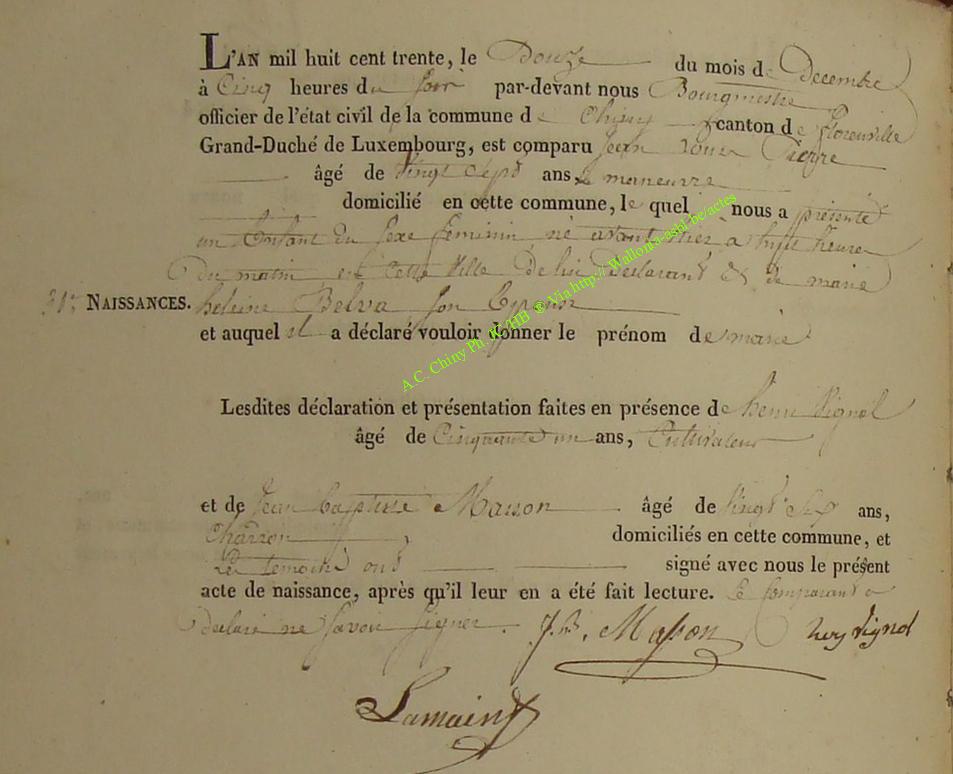 L'AN mil huit cent trente, le Douze du mois de Decembre
à Cinq heures du soir par-devant nous Bourgmestre
officier de l'état civil de la commune de Chiny canton de florenville
Grand-Duché de Luxembourg, est comparu jean louis Pierre
âgé de vingt sept ans, maneuvre
domicilié en cette commune, le quel nous a présenté
un Enfant du sexe feminin né avant hier à huit heures
Du matin en cette ville de lui Declarant & de marie
31e NAISSANCES. heleine Belva son Epouse
et auquel il a déclaré vouloir donner le prénom de marie
Lesdites déclaration et présentation faites en présence de henri Pignol
âgé de Cinquante un ans, Cultivateur
et de jean baptiste Masson âgé de vingt six ans,
Charron domiciliés en cette commune, et
Les temoins ont signé avec nous le présent
acte de naissance, après qu'il leur en a été fait lecture. Le Comparant a
declaré ne savoir signer. J.B. Masson Pignol
Lamain
A.C. Chiny Ph. K/HB ® Via http://Wallonia-asbl.be/actes